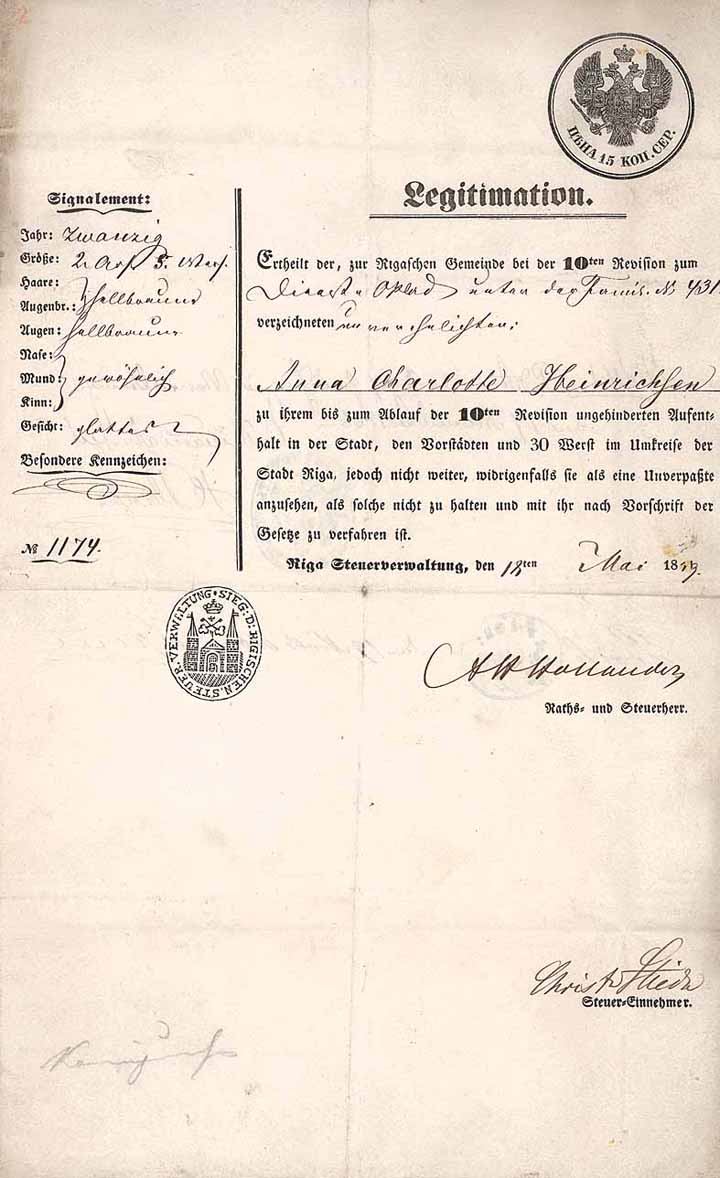 ЦѢНА 15 КОП. СЕР.
Legitimation.
Signalement:
Jahr: Zwanzig
Größe: 2 Arß 5. Wersch.
Haare:
Augenbr.: hellbraun
Augen: hellbraun
Nase:
Mund: gewöhnlich
Kinn:
Gesicht: glattes
Besondere Kennzeichen:
№ 1174.
Ertheilt der, zur Rigaschen Gemeinde bei der 10ten Revision zum
Dienst-Oklad unter der Famil. № 431
verzeichneten unverehelichten:
Anna Charlotte Heinrichsen
zu ihrem bis zum Ablauf der 10ten Revision ungehinderten Aufent-
halt in der Stadt, den Vorstädten und 30 Werst im Umkreise der
Stadt Riga, jedoch nicht weiter, widrigenfalls sie als eine Unverpaßte
anzusehen, als solche nicht zu halten und mit ihr nach Vorschrift der
Gesetze zu verfahren ist.
Riga Steuerverwaltung, den 18ten Mai 1859.
SIEG: D: RIGISCHEN STEUER VERWALTUNG
A H Hollander
Raths- und Steuerherr.
Christ. Stieda
Steuer-Einnehmer.